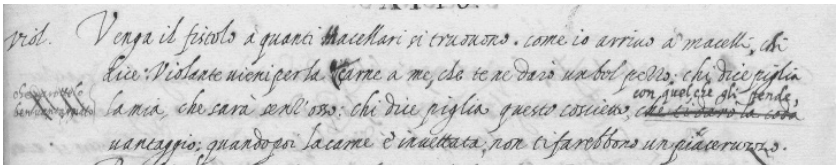 viol. Venga il fistolo à quanti Macellari si truouono. come io arriuo à macelli, chi
dice: Violante uieni per la carne a me, che te ne darò un bel pezzo: chi dice piglia
la mia, che sarà senz'osso: chi dice piglia questo coscietto,
con quel che gli pende,
uantaggio; quando poi la carne è inuettata, non ti farebbono un piaceruzzo.